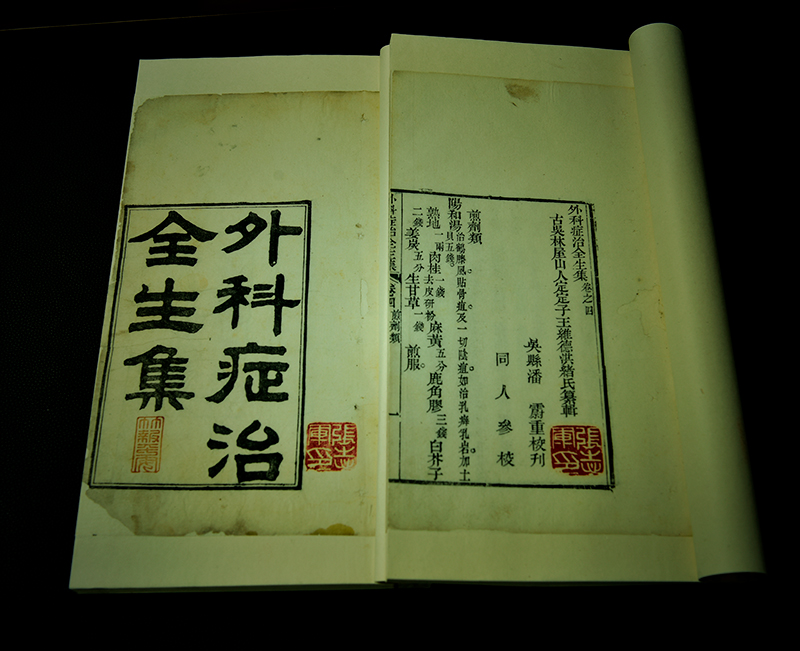 外科症治全生集 卷之四
古吳林屋山人定定子王維德洪緒氏纂輯
吳縣潘 霨重校刋
同人參校
張志軍印
煎劑類
陽和湯治鶴膝風貼骨疽及一切陰疽如治乳癖乳岩加土貝五錢。
熟地一兩肉桂一錢去皮研粉麻黃五分鹿角膠三錢白芥子
二錢姜炭五分生甘草一錢 煎服。
外科症治全生集 卷四 煎劑類 一
外科症治
全生集
張志軍印